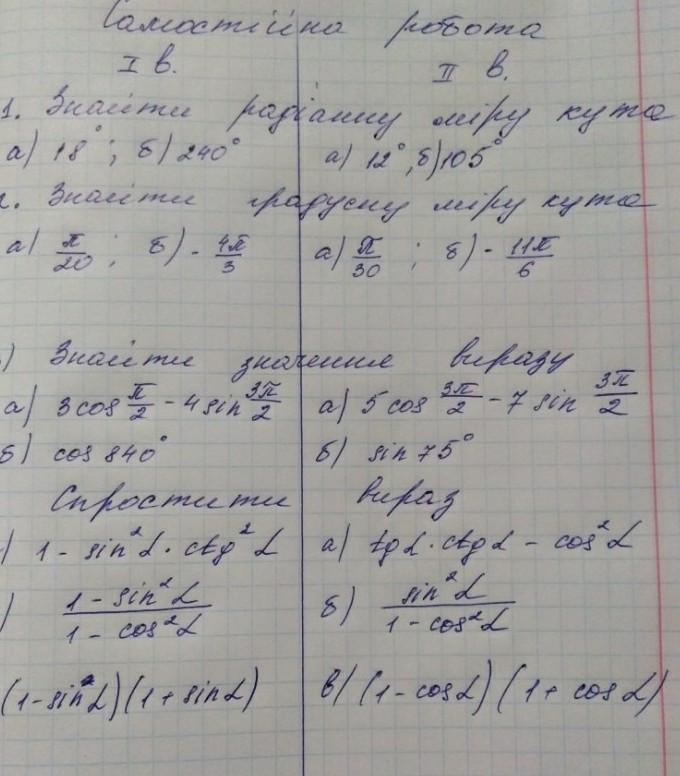 Самостійна робота
I в. II в.
1. Знайти радіанну міру кута
а) 18°; б) 240° а) 12°, б) 105°
2. Знайти градусну міру кута
а) π/20; б) - 4π/3 а) π/30; б) - 11π/6
) Знайти значення виразу
а) 3 cos π/2 - 4 sin 3π/2 а) 5 cos 3π/2 - 7 sin 3π/2
б) cos 840° б) sin 75°
Спростити вираз
) 1 - sin²α · ctg²α а) tgα · ctgα - cos²α
) (1 - sin²α)/(1 - cos²α) б) sin²α/(1 - cos²α)
(1 - sin α)(1 + sin α) в) (1 - cosα)(1 + cosα)